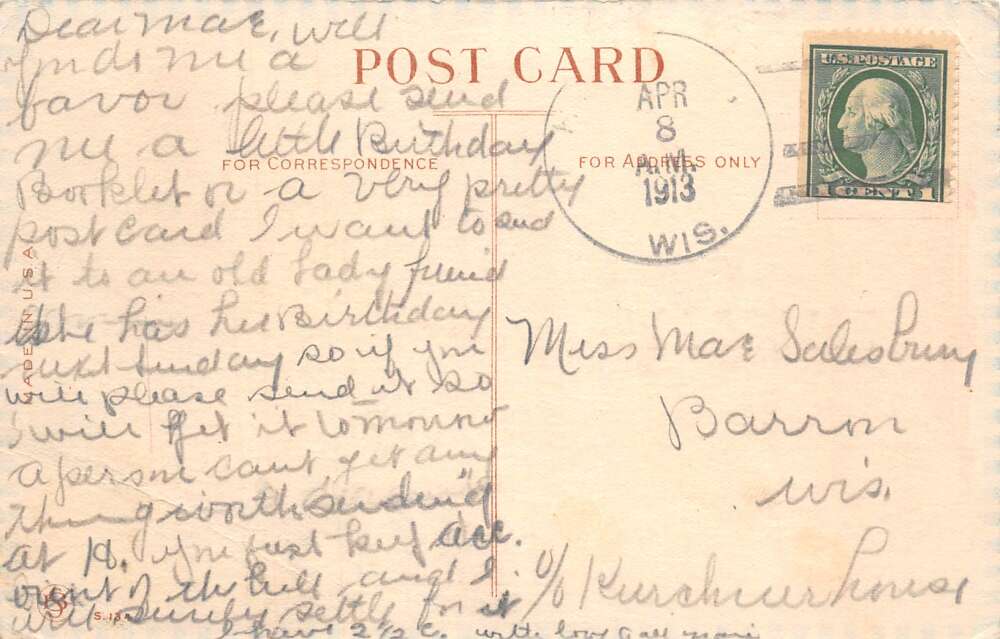 Dear Mae, will
you do me a
favor please send
me a little Birthday
Booklet or a very pretty
post card I want to send
it to an old Lady friend
she has her Birthday
next Sunday so if you
will please send it so
I will get it tomorrow
a person cant get any
thing worth sending
at H. you just keep acc.
ount of the bill and I
will surely settle for it
have 2 1/2 c. with love
POST CARD
FOR CORRESPONDENCE
FOR ADDRESS ONLY
MADE IN U.S.A.
S. 13
APR
8
A.M.
1913
WIS.
U.S. POSTAGE
1 CENT 1
Miss Mae Salesbury
Barron
Wis.
c/o Kurchner house